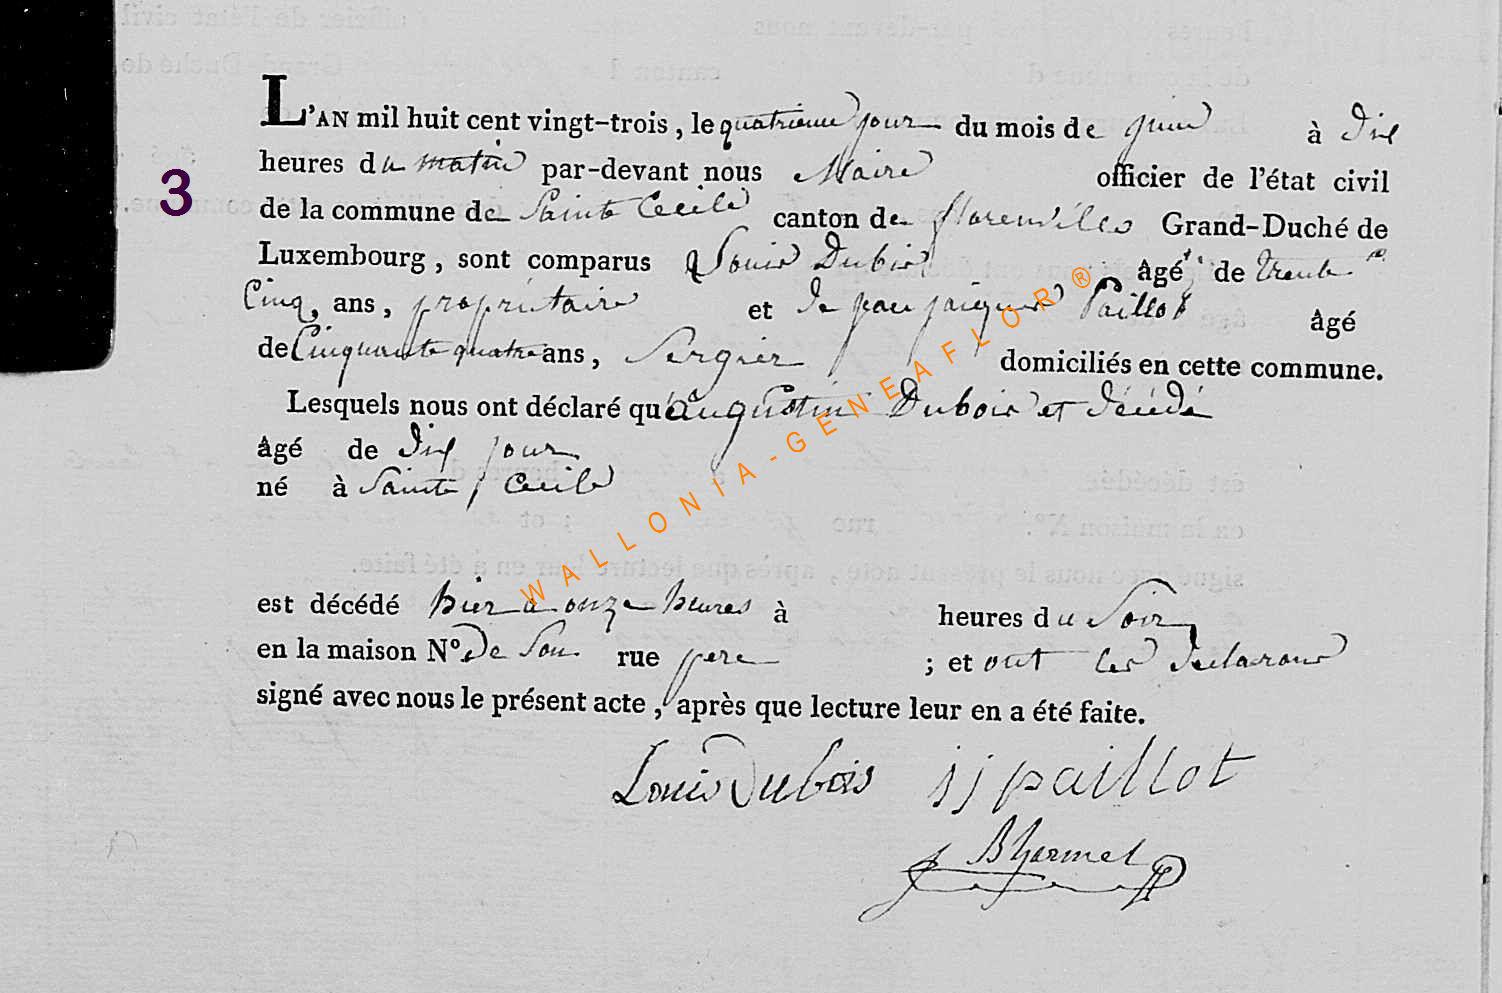 L'AN mil huit cent vingt-trois, le quatrieme jour du mois de juin à dix
heures du matin par-devant nous Maire officier de l'état civil
3
de la commune de Sainte Cecile canton de florenville Grand-Duché de
Luxembourg, sont comparus Louis Dubois âgé de trente
Cinq, ans, propriétaire et de jean jacques Paillot âgé
de Cinquante quatre ans, Sergier domiciliés en cette commune.
Lesquels nous ont déclaré qu'augustin Dubois et décédé
âgé de dix jour
né à Sainte Cecile
est décédé hier a onze heures à heures du Soir
en la maison N.º De Son rue pere ; et ont les declarans
signé avec nous le présent acte, après que lecture leur en a été faite.
Louis Dubois jj paillot
WALLONIA-GENEAFLOR®